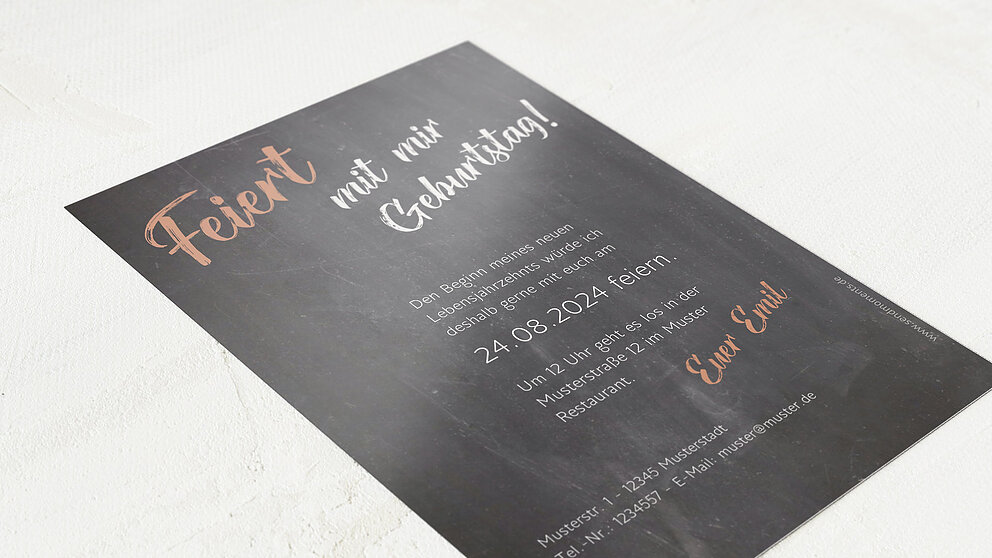 Feiert
mit mir
Geburtstag!
Den Beginn meines neuen
Lebensjahrzehnts würde ich
deshalb gerne mit euch am
24.08.2024 feiern.
Um 12 Uhr geht es los in der
Musterstraße 12 im Muster
Restaurant.
Euer Emil
Musterstr. 1 - 12345 Musterstadt
Tel.-Nr.: 1234557 - E-Mail: muster@muster.de
www.sendmoments.de